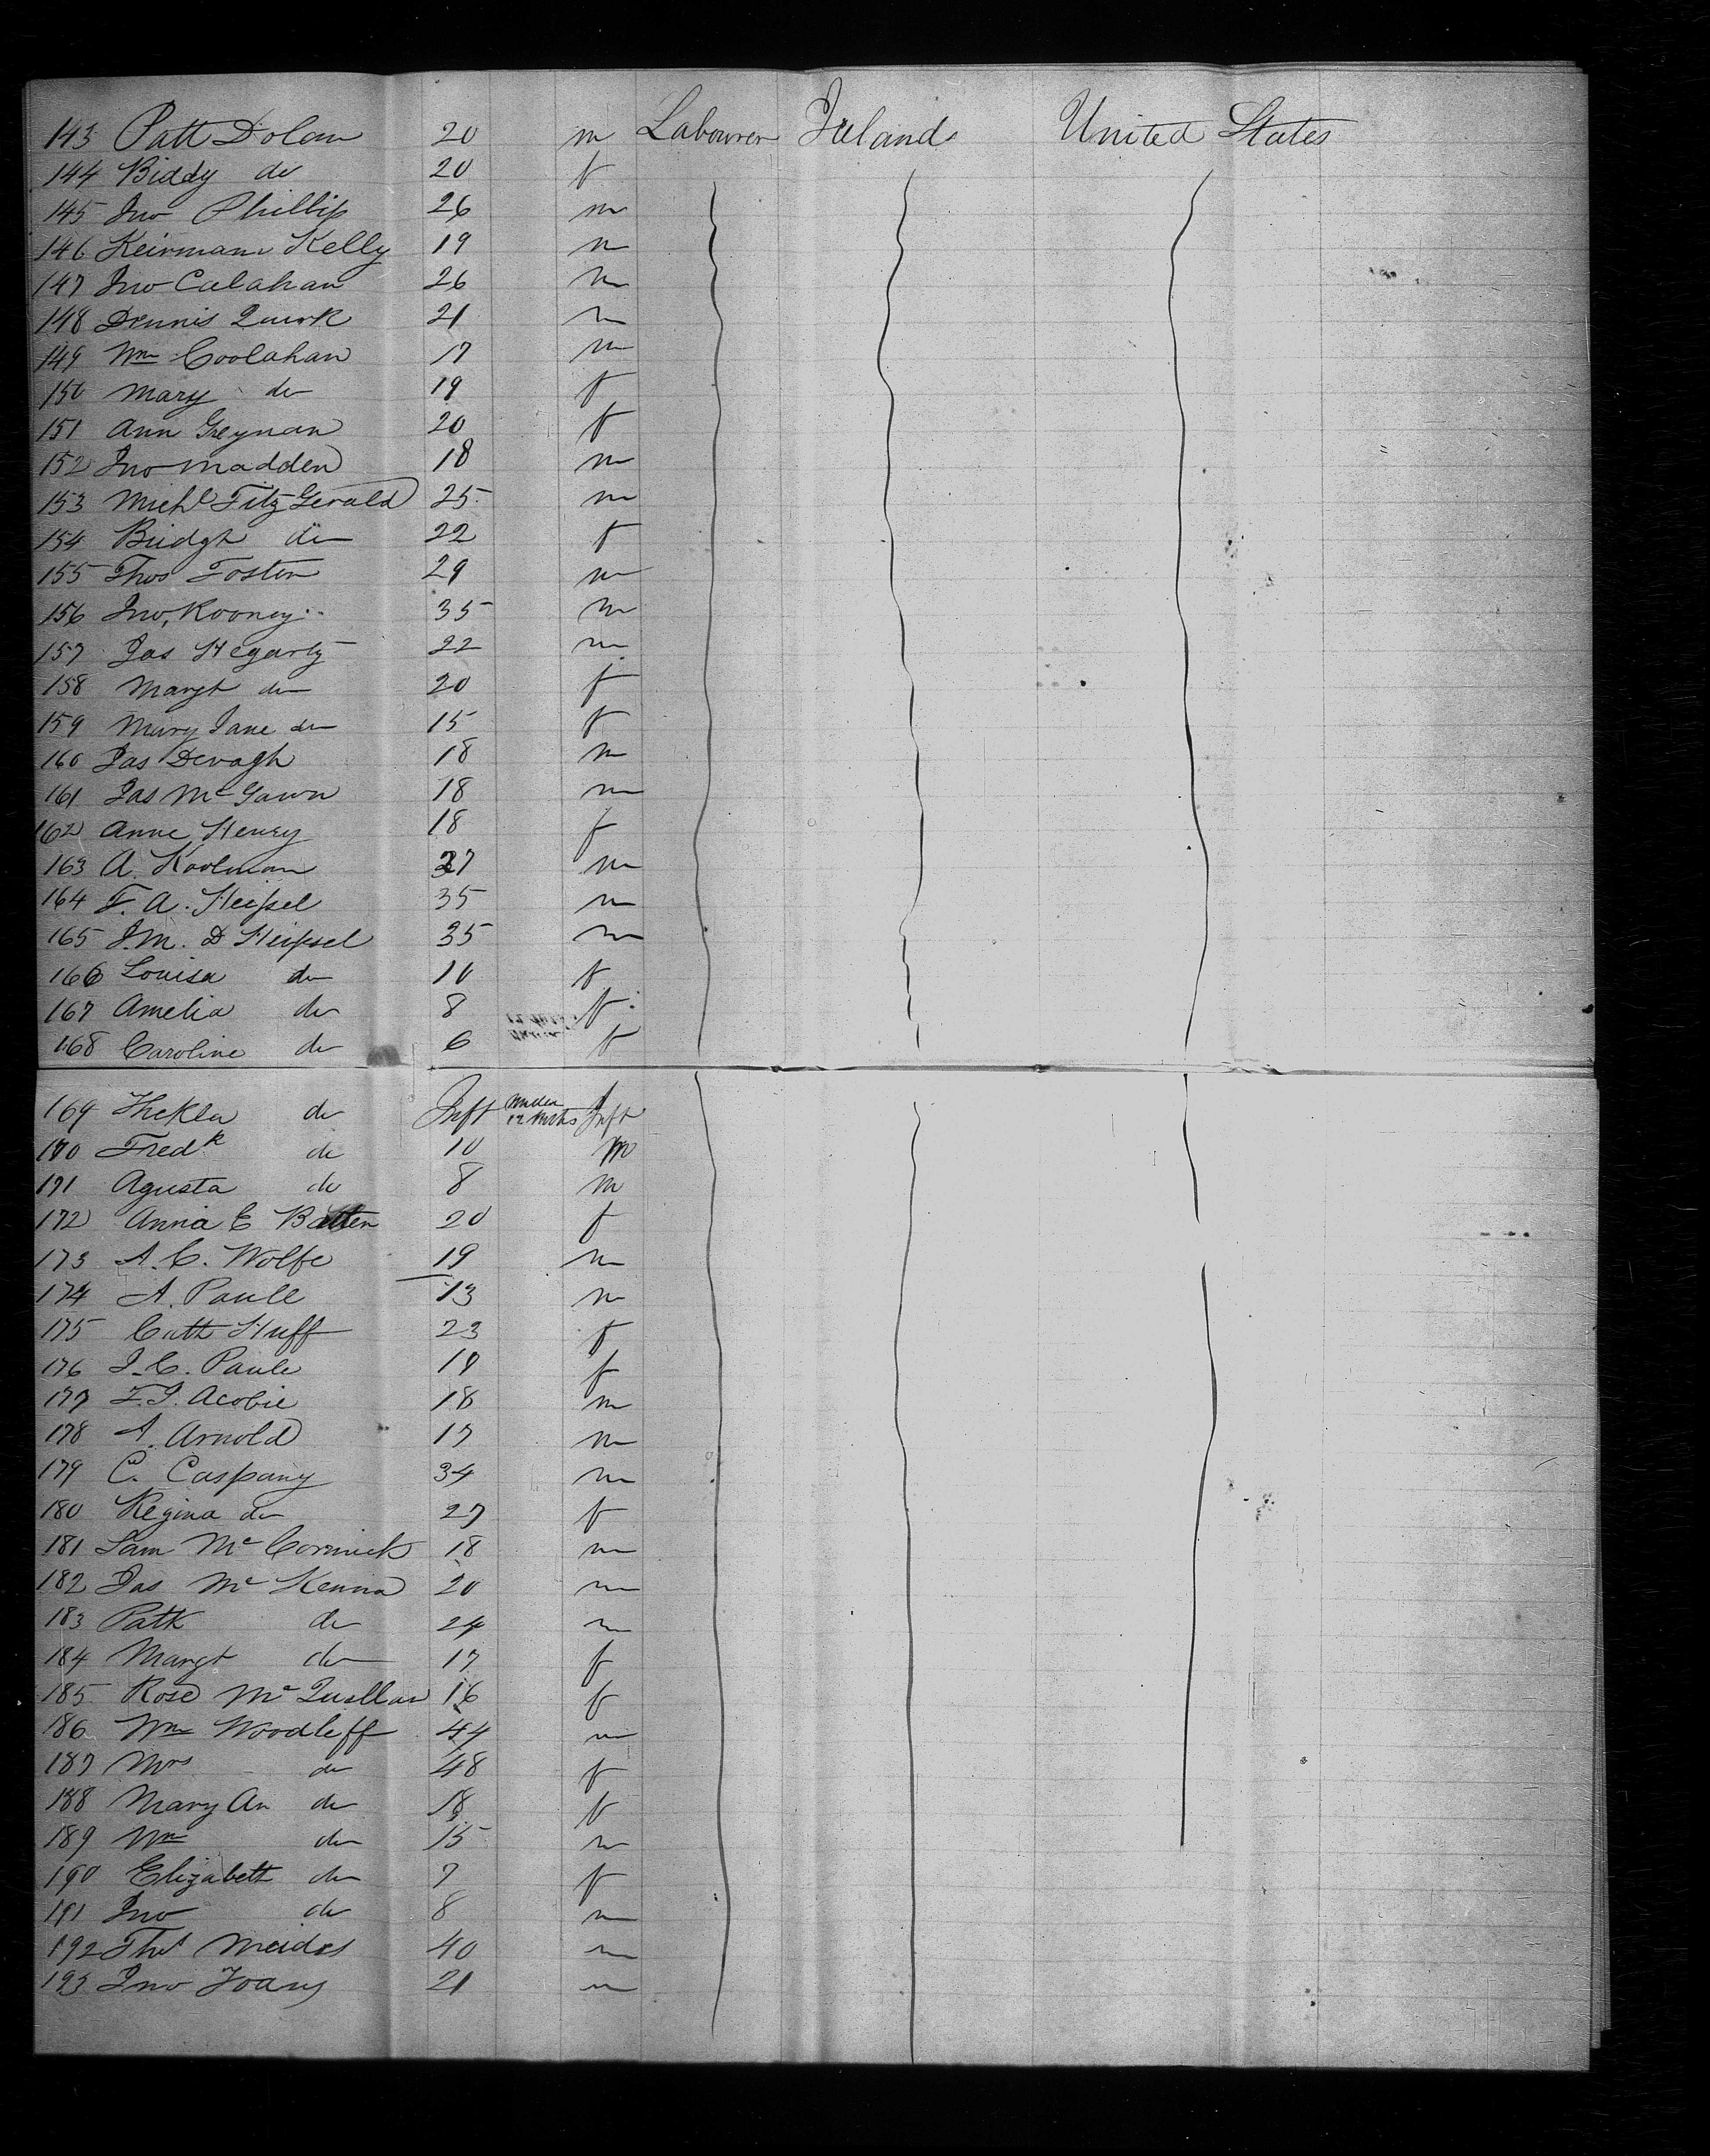 143 Patt Dolan 20 m Labourer Ireland United States
144 Biddy do 20 f
145 Jno Phillip 26 m
146 Keirnan Kelly 19 m
147 Jno Calahan 26 m
148 Dennis Quirk 21 m
149 Wm Coolahan 17 m
150 Mary do 19 f
151 Ann Greynan 20 f
152 Jno Madden 18 m
153 Michl FitzGerald 25 m
154 Bridgt do 22 f
155 Thos Foster 29 m
156 Jno, Rooney 35 m
157 Jas Hegarty 22 m
158 Margt do 20 f
159 Mary Jane do 15 f
160 Jas Devagh 18 m
161 Jas McGawn 18 m
162 Anne Henry 18 f
163 A. Koolman 37 m
164 F. A. Heissel 35 m
165 J.M. D Heissel 35 m
166 Louisa do 10 f
167 Amelia do 8 f
168 Caroline do 6 f
169 Thekla do Inft under 12 mths Inft
170 Fredk do 10 m
171 Agusta do 8 m
172 Anna E Batten 20 f
173 A. C. Wolfe 19 m
174 A. Paull 13 m
175 Cath Huff 23 f
176 J. C. Paule 19 f
177 F. J. Acobie 18 m
178 A. Arnold 17 m
179 C. Caspany 34 m
180 Regina do 27 f
181 Sam McCormick 18 m
182 Jas McKenna 20 m
183 Patk do 24 m
184 Margt do 17 f
185 Rose McQuillan 16 f
186 Wm Woodleff 44 m
187 Mrs do 48 f
188 Mary An do 18 f
189 Wm do 15 m
190 Elizabeth do 7 f
191 Jno do 8 m
192 Thos 40 m
193 Jno 21 m